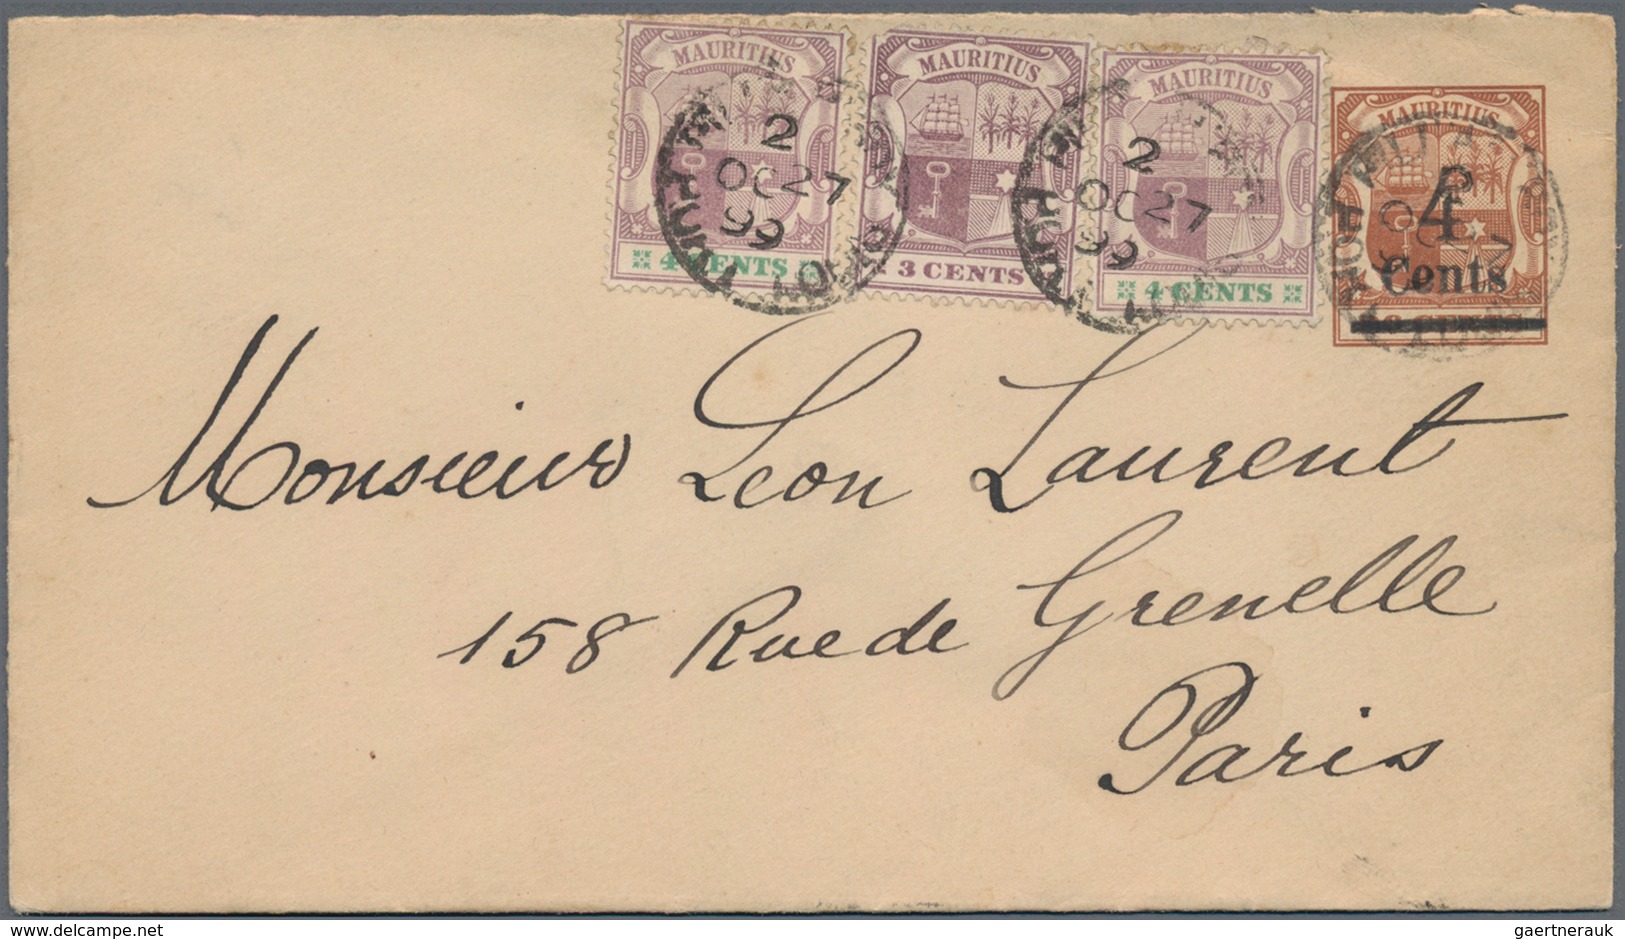 MAURITIUS
4 CENTS
MAURITIUS
3 CENTS
MAURITIUS
4 CENTS
MAURITIUS
4
Cents
2
OC 27
99
2
OC 27
99
Monsieur Leon Laurent
158 Rue de Grenelle
Paris
www.delcampe.net
gaertnerauk